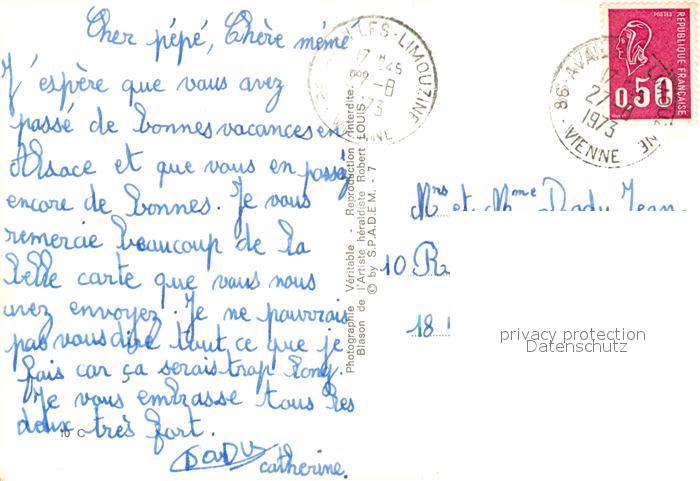 Cher pépé, Chère mémé
J'espère que vous avez
passé de bonnes vacances en
Alsace et que vous en passez
encore de bonnes. Je vous
remercie beaucoup de la
belle carte que vous nous
avez envoyez. Je ne pourrais
pas vous dire tout ce que je
fais car ça serais trop long.
Je vous embrasse tous les
deux très fort.
DADU
catherine.
10 C
Photographie Véritable - Reproduction Interdite.
Blason de l'Artiste héraldiste Robert LOUIS.
© by S.P.A.D.E.M. - 7
LES-LIMOUZINE
17 H45
27-8
1973
VIENNE
REPUBLIQUE FRANÇAISE
0,50
86-AVAIL
27-8
1973
VIENNE
Mrs et Mme Dadu Jean
10 R
18
privacy protection
Datenschutz